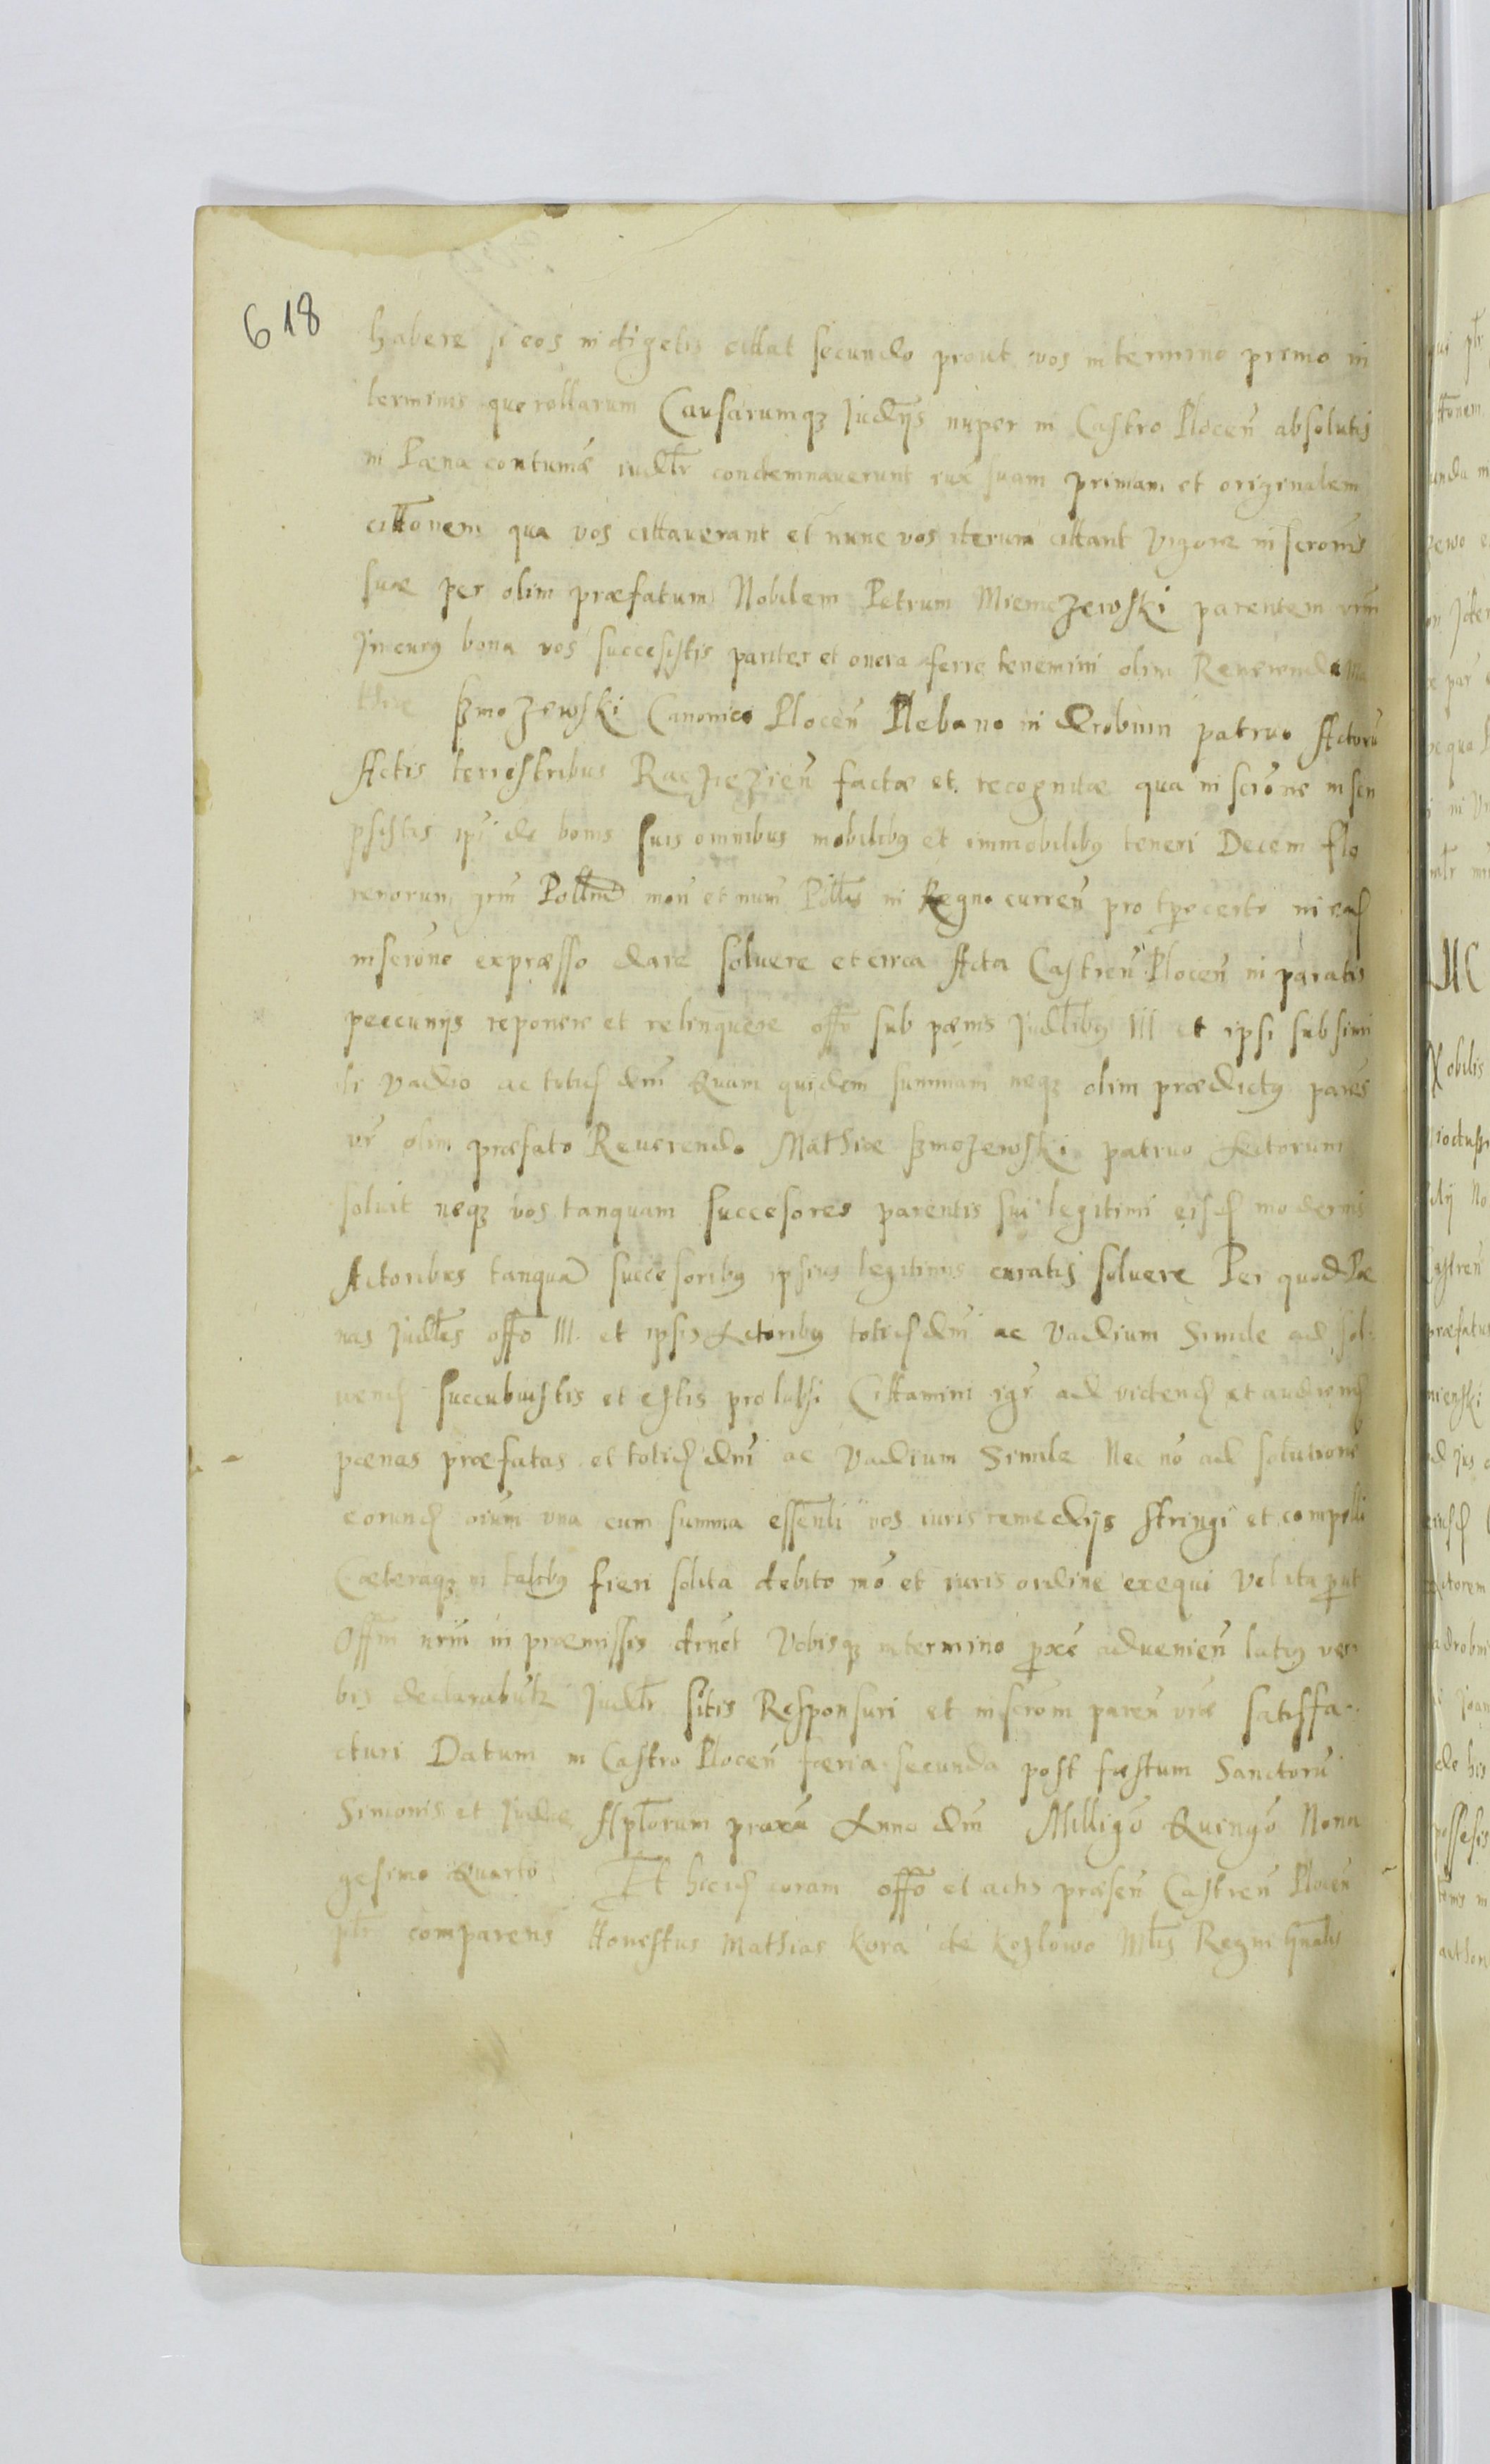 618
habere si eos indigetis cittat secundo prout vos in termino primo in
terminis querellarum Causarumqz Judijs nuper in Castro Plocen̄ absolutis
in Pæna contumā iudlr condemnauerunt iux suam primam et originalem
cittonem qua vos cittauerant et nunc vos iterum cittant Vigore inscronis
suæ per olim præfatum Nobilem Petrum Miemczewski parentem vrm̄
In cuiy bona vos successistis pariter et onera ferre tenemini olim Reuerendo Ma
thiæ Szmozewski Canonico Plocen̄ Plebano in Drobnin patruo Actorū
Actis terrestribus Racziezien̄ factæ et recognitæ qua inscrōne inscri
psistis ipi de bonis suis omnibus mobiliby et immobiliby teneri Decem flo
renorum Pollm mon̄ et num̄ Pollis in Regno curren̄ pro tpe certo in ead
inscrōne expræsso dare soluere et circa Acta Castren̄ Plocen̄ in paratis
peccunijs reponere et relinquere offo sub pænis Judlibg III et ipsi sub simi
li Vadio ac totid dm̄ Quam quidem summam neqz olim prædicty parēs
vr̄ olim præfato Reuerendo Mathiæ Szmozewski patruo Actorum
soluit neqz vos tanquam succesores parentis sui legitimi eisd modernis
Actoribus tanquā succesoriby ipsius legitimis curatis soluere Per quod Pæ
nas Judles offo III. et ipsis Actoriby totid dm̄ ac Vadium Simile ad sol
uend succubuistis et estis prolabsi Cittamini igr ad videnð et audiend
pænas præfatas et totid dm̄ ac Vadium Simile Nec nō ad solutionē
eorund oium una cum summa essentli vos iuris remedijs stringi et compelli
Cæteraqz in taliby fieri solita debito mō et iuris ordine exequi Vel ita put
Offm nrm̄ in præmissis Vobisqz in termino pxē aduenien̄ laty ver
bis declarabutz Judlr sitis Responsuri et inscrom paren̄ vræ satisfa
cturi Datum in Castro Plocen̄ færia secunda post fæstum Sanctorū
Simonis et Judæ Aplorum proxā Anno dm̄ Milligō Quingō Nona
gesimo Quarto Et hicid coram offo et actis præsen̄ Castren̄ Plocen̄
plr comparens Honestus Mathias Kora de Kozlowo Mlis Regni Gnalis